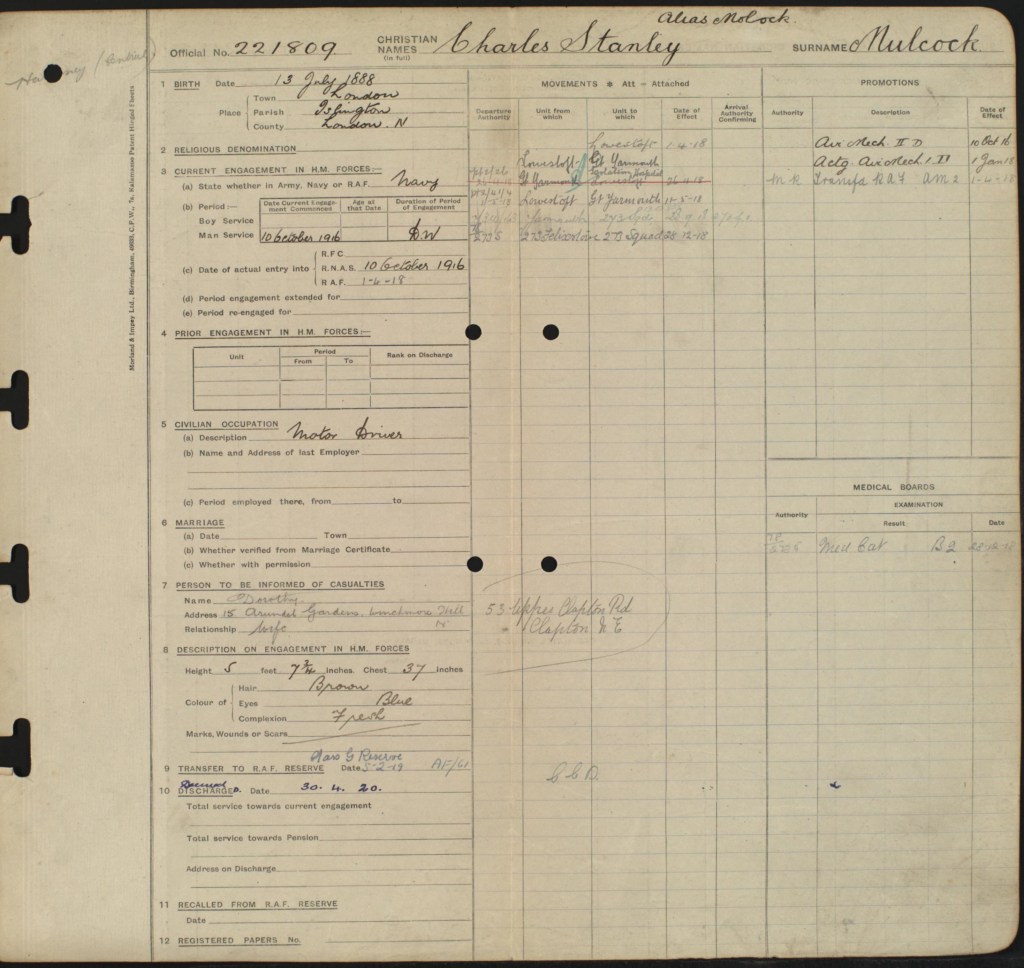 Alias Molock.
Official No. 221809 CHRISTIAN NAMES (in full) Charles Stanley SURNAME Mulcock.
Morland & Impey Ltd., Birmingham, C.F.W., Kalamazoo Patent Hinged Sheets
1 BIRTH Date 13 July 1888
Place Town London
Parish Islington
County London. N
2 RELIGIOUS DENOMINATION
3 CURRENT ENGAGEMENT IN H.M. FORCES:—
(a) State whether in Army, Navy or R.A.F. Navy
(b) Period:—
Date Current Engagement Commenced Age at that Date Duration of Period of Engagement
Boy Service
Man Service 10 October 1916 DW
(c) Date of actual entry into R.F.C
R.N.A.S. 10 October 1916
R.A.F. 1-4-18
(d) Period engagement extended for
(e) Period re-engaged for
4 PRIOR ENGAGEMENT IN H.M. FORCES:—
Unit Period Rank on Discharge
From To
5 CIVILIAN OCCUPATION
(a) Description Motor Driver
(b) Name and Address of last Employer
(c) Period employed there, from to
6 MARRIAGE
(a) Date Town
(b) Whether verified from Marriage Certificate
(c) Whether with permission
7 PERSON TO BE INFORMED OF CASUALTIES
Name Dorothy
Address 15 Arundel Gardens. Winchmore Hill N
Relationship Wife
8 DESCRIPTION ON ENGAGEMENT IN H.M. FORCES
Height 5 feet 7¾ inches. Chest 37 inches
Colour of Hair Brown
Eyes Blue
Complexion Fresh
Marks, Wounds or Scars
Class G Reserve
9 TRANSFER TO R.A.F. RESERVE Date 5-2-19 AF/61
Deemed
10 DISCHARGED. Date 30. 4. 20.
Total service towards current engagement
Total service towards Pension
Address on Discharge
11 RECALLED FROM R.A.F. RESERVE
Date
12 REGISTERED PAPERS No.
MOVEMENTS * Att - Attached
Departure Authority Unit from which Unit to which Date of Effect Arrival Authority Confirming
Lowestoft 1-4-18
Lowestoft Gt Yarmouth
Isolation Hospital
Gt Yarmouth Lowestoft 26-4-18
Lowestoft Gt Yarmouth 11-5-18
Yarmouth 273 Sqd
273 Felixstowe 273 Squad 28-12-18
53 Upper Clapton Rd
Clapton N E
PROMOTIONS
Authority Description Date of Effect
Air Mech. II D 10 Oct 16
Actg. Air Mech. I D 1 Jan 18
M R Transfd RAF AM 2 1-4-18
MEDICAL BOARDS
Authority EXAMINATION
Result Date
Med Cat B2 28-12-18